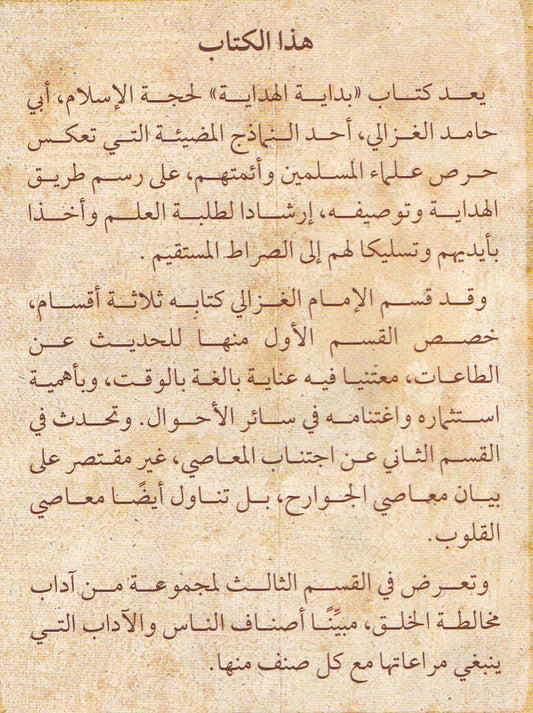 هذا الكتاب
يعد كتاب «بداية الهداية» لحجة الإسلام، أبي
حامد الغزالي، أحد النماذج المضيئة التي تعكس
حرص علماء المسلمين وأئمتهم، على رسم طريق
الهداية وتوصيفه، إرشادا لطلبة العلم وأخذا
بأيديهم وتسليكا لهم إلى الصراط المستقيم .
وقد قسم الإمام الغزالي كتابه ثلاثة أقسام،
خصص القسم الأول منها للحديث عن
الطاعات، معتنيا فيه عناية بالغة بالوقت، وبأهمية
استثماره واغتنامه في سائر الأحوال. وتحدث في
القسم الثاني عن اجتناب المعاصي، غير مقتصر على
بيان معاصي الجوارح، بل تناول أيضًا معاصي
القلوب.
وتعرض في القسم الثالث لمجموعة من آداب
مخالطة الخلق، مبيِّنًا أصناف الناس والآداب التي
ينبغي مراعاتها مع كل صنف منها.